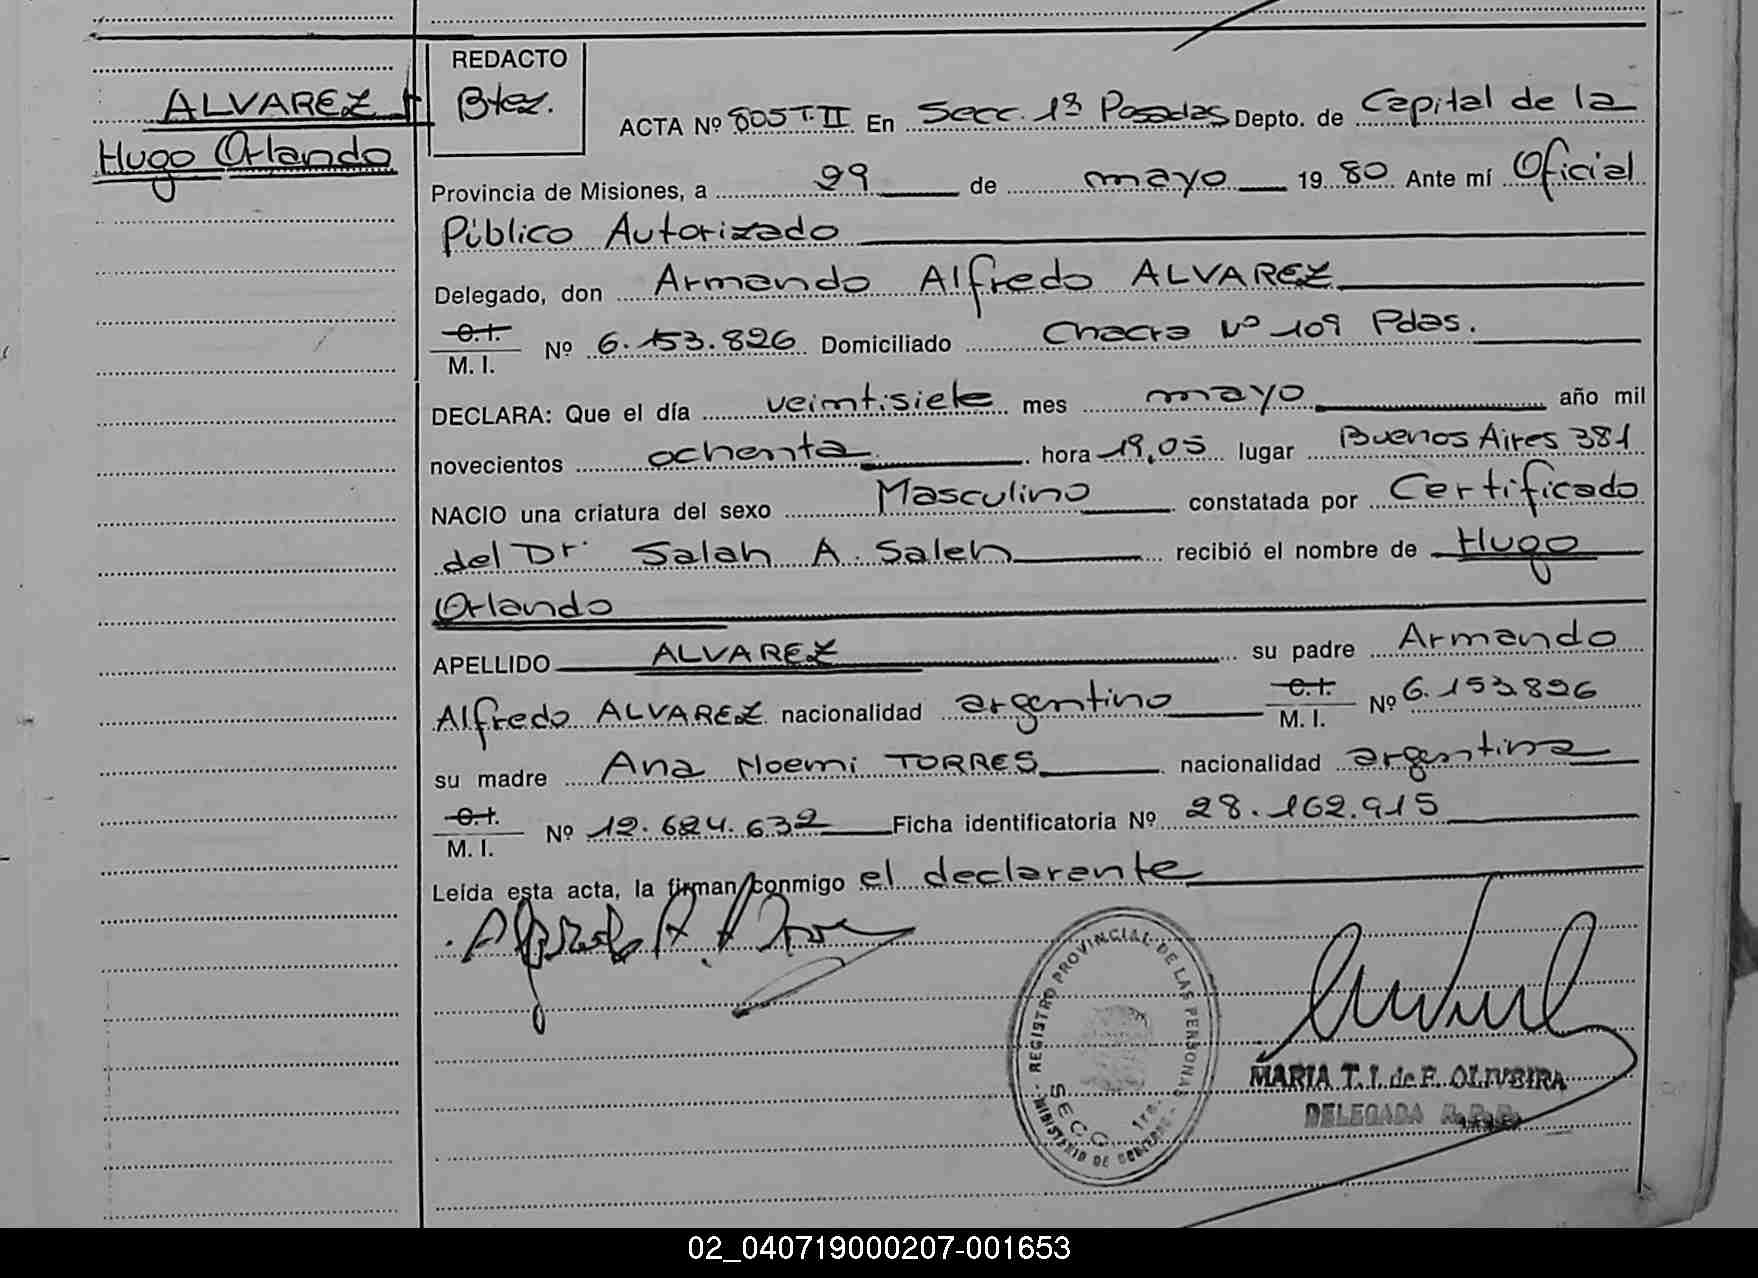 REDACTO
Btez.
ALVAREZ
Hugo Orlando
ACTA Nº 805 T. II En Secc. 1ª Posadas Depto. de Capital de la
Provincia de Misiones, a 29 de mayo 19 80 Ante mí Oficial
Público Autorizado
Delegado, don Armando Alfredo ALVAREZ
C.I.
M. I. Nº 6.153.826 Domiciliado Chacra Nº 109 Pdas.
DECLARA: Que el día veintisiete mes mayo año mil
novecientos ochenta hora 19,05 lugar Buenos Aires 381
NACIO una criatura del sexo Masculino constatada por Certificado
del Dr. Salah A. Saleh recibió el nombre de Hugo
Orlando
APELLIDO ALVAREZ su padre Armando
Alfredo ALVAREZ nacionalidad argentino C.I. M. I. Nº 6.153.826
su madre Ana Noemi TORRES nacionalidad argentina
C.I.
M. I. Nº 12.624.632 Ficha identificatoria Nº 28.162.915
Leída esta acta, la firman conmigo el declarante
REGISTRO PROVINCIAL DE LAS PERSONAS
SECC. 1ra.
MINISTERIO DE GOBIERNO
MARIA T. I. de F. OLIVEIRA
DELEGADA R.P.P.
02_040719000207-001653